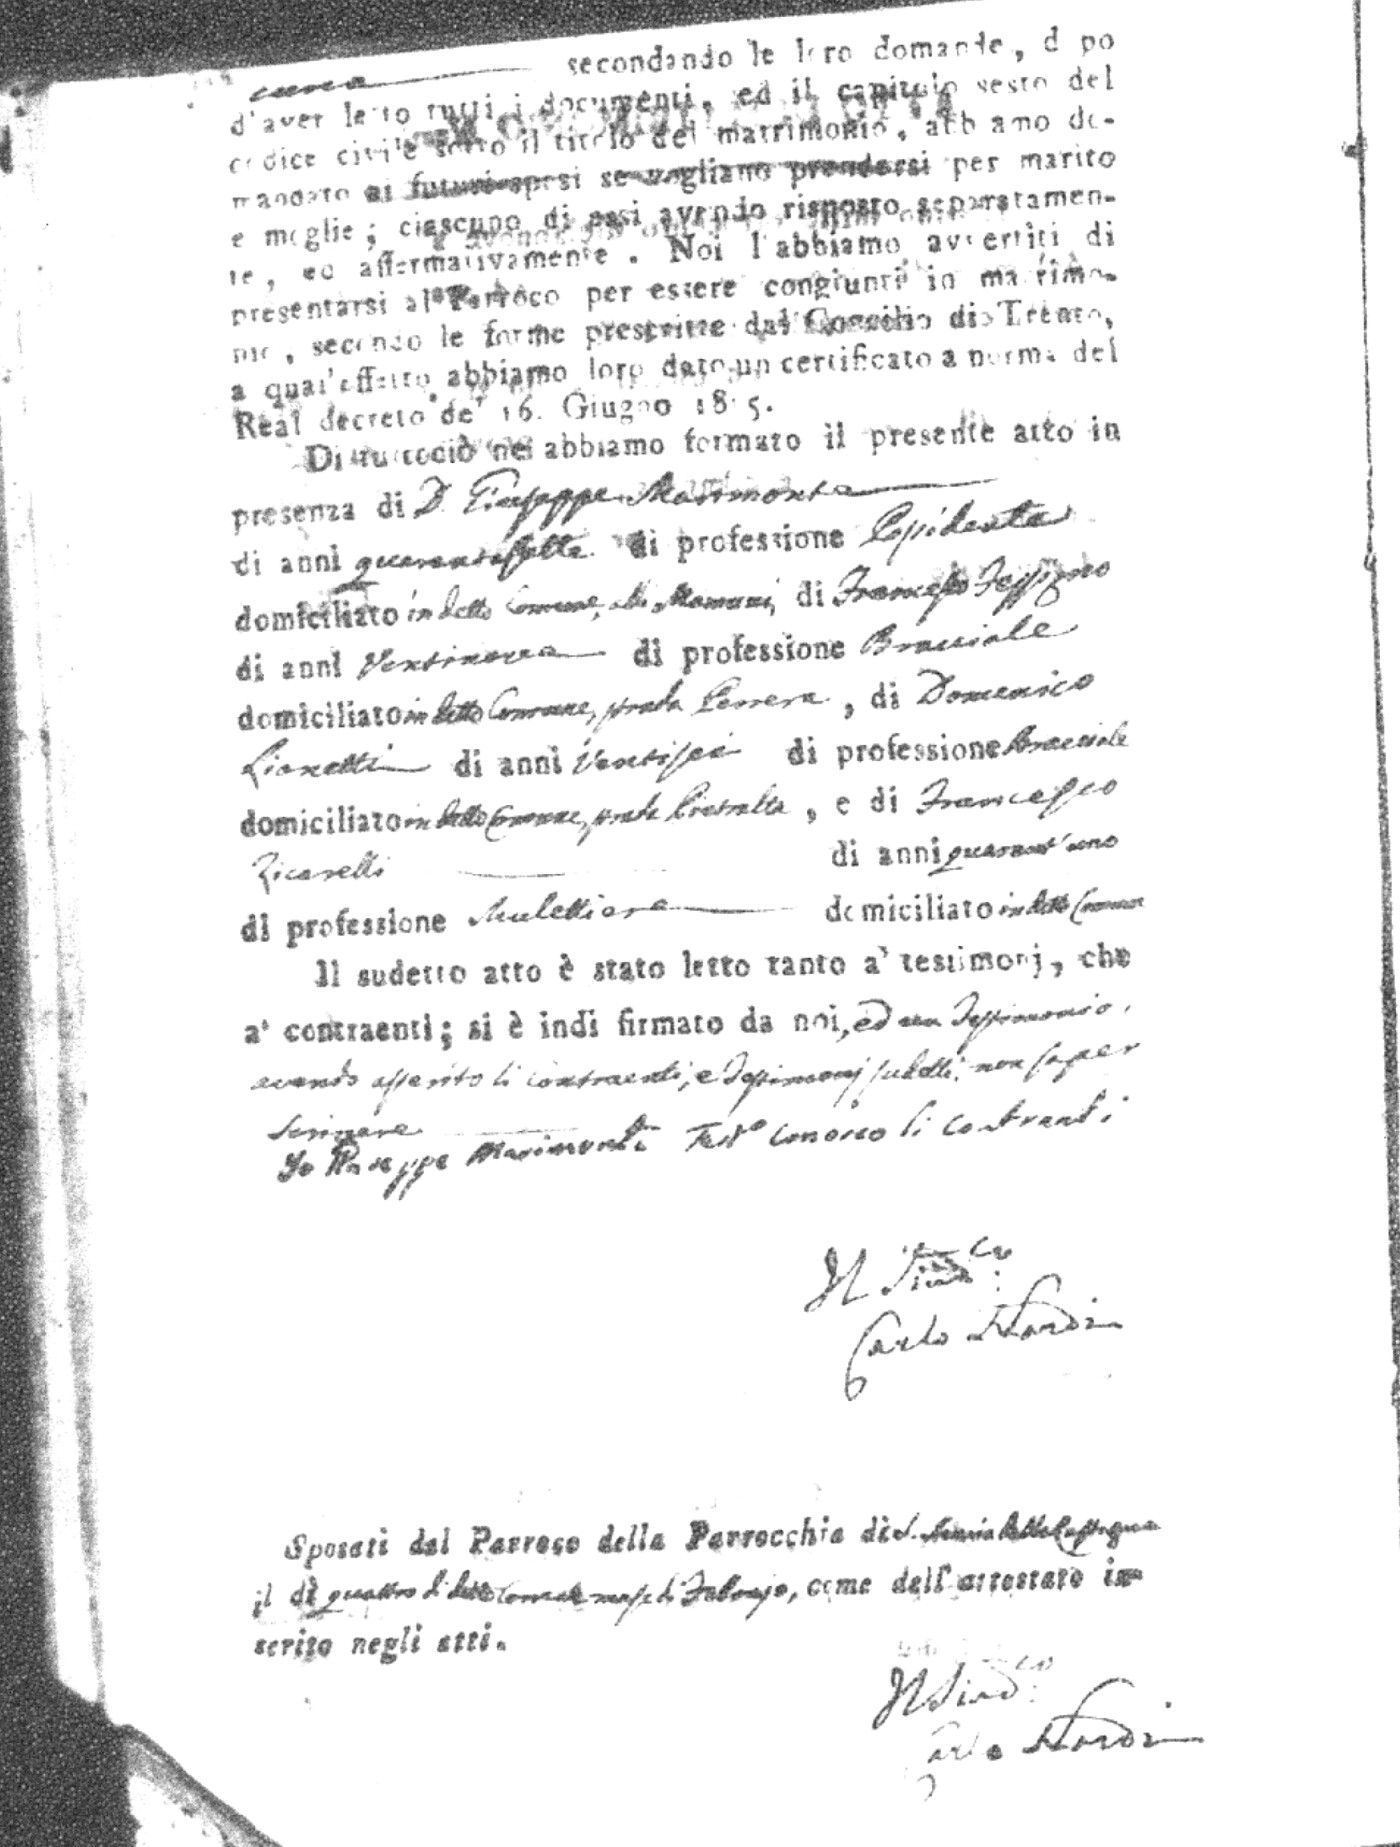 secondando le loro domande, dopo
d'aver letto tutti i documenti, ed il capitulo sesto del
codice civile sotto il titolo del matrimonio, abbiamo do-
mandato ai futuri sposi se vogliano prendersi per marito
e moglie; ciascuno di essi avendo risposto separatamen-
te, ed affermativamente. Noi l'abbiamo avvertiti di
presentarsi al Parroco per essere congiunti in matrimo-
nio, secondo le forme prescritte dal Concilio di Trento,
a qual'effetto abbiamo loro dato un certificato a norma del
Real decreto de' 16. Giugno 1815.
Di tuttociò ne abbiamo formato il presente atto in
presenza di D. Giuseppe Marimonti
di anni quarantasette di professione
domiciliato in detto Comune, di Francesco
di anni Ventinove di professione Bracciale
domiciliato in detto Comune, strada , di Domenico
Lionetti di anni Ventisei di professione Bracciale
domiciliato in detto Comune, strada , e di Francesco
Zicarelli di anni quarant'uno
di professione Mulettiere domiciliato in detto Comune
Il sudetto atto è stato letto tanto a' testimonj, che
a' contraenti; si è indi firmato da noi, ed un Testimonio,
avendo asserito li contraenti, e Testimonj sudetti, non saper
scrivere
Io Giuseppe Marimonti Test.o conosco li contraenti
Il Sindco
Carlo Nardi
Sposati dal Parroco della Parrocchia di S. Maria
il dì quattro di detto mese di Febrajo, come dell'attestato in-
serito negli atti.
Il Sindco
Carlo Nardi